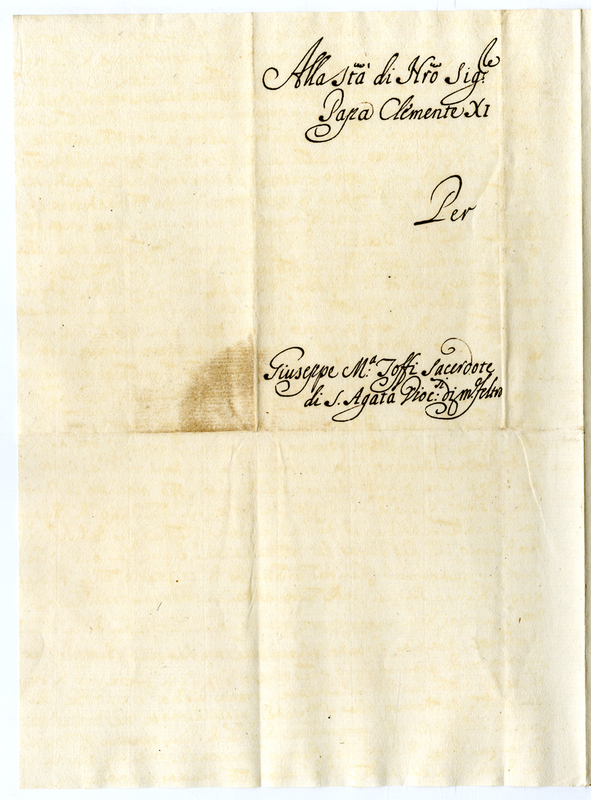 Alla Stà di Nrõ Sig.re
Papa Clemente XI
Per
Giuseppe M.a Toffi Sacerdote
di S. Agata Dioc.i di m.feltro